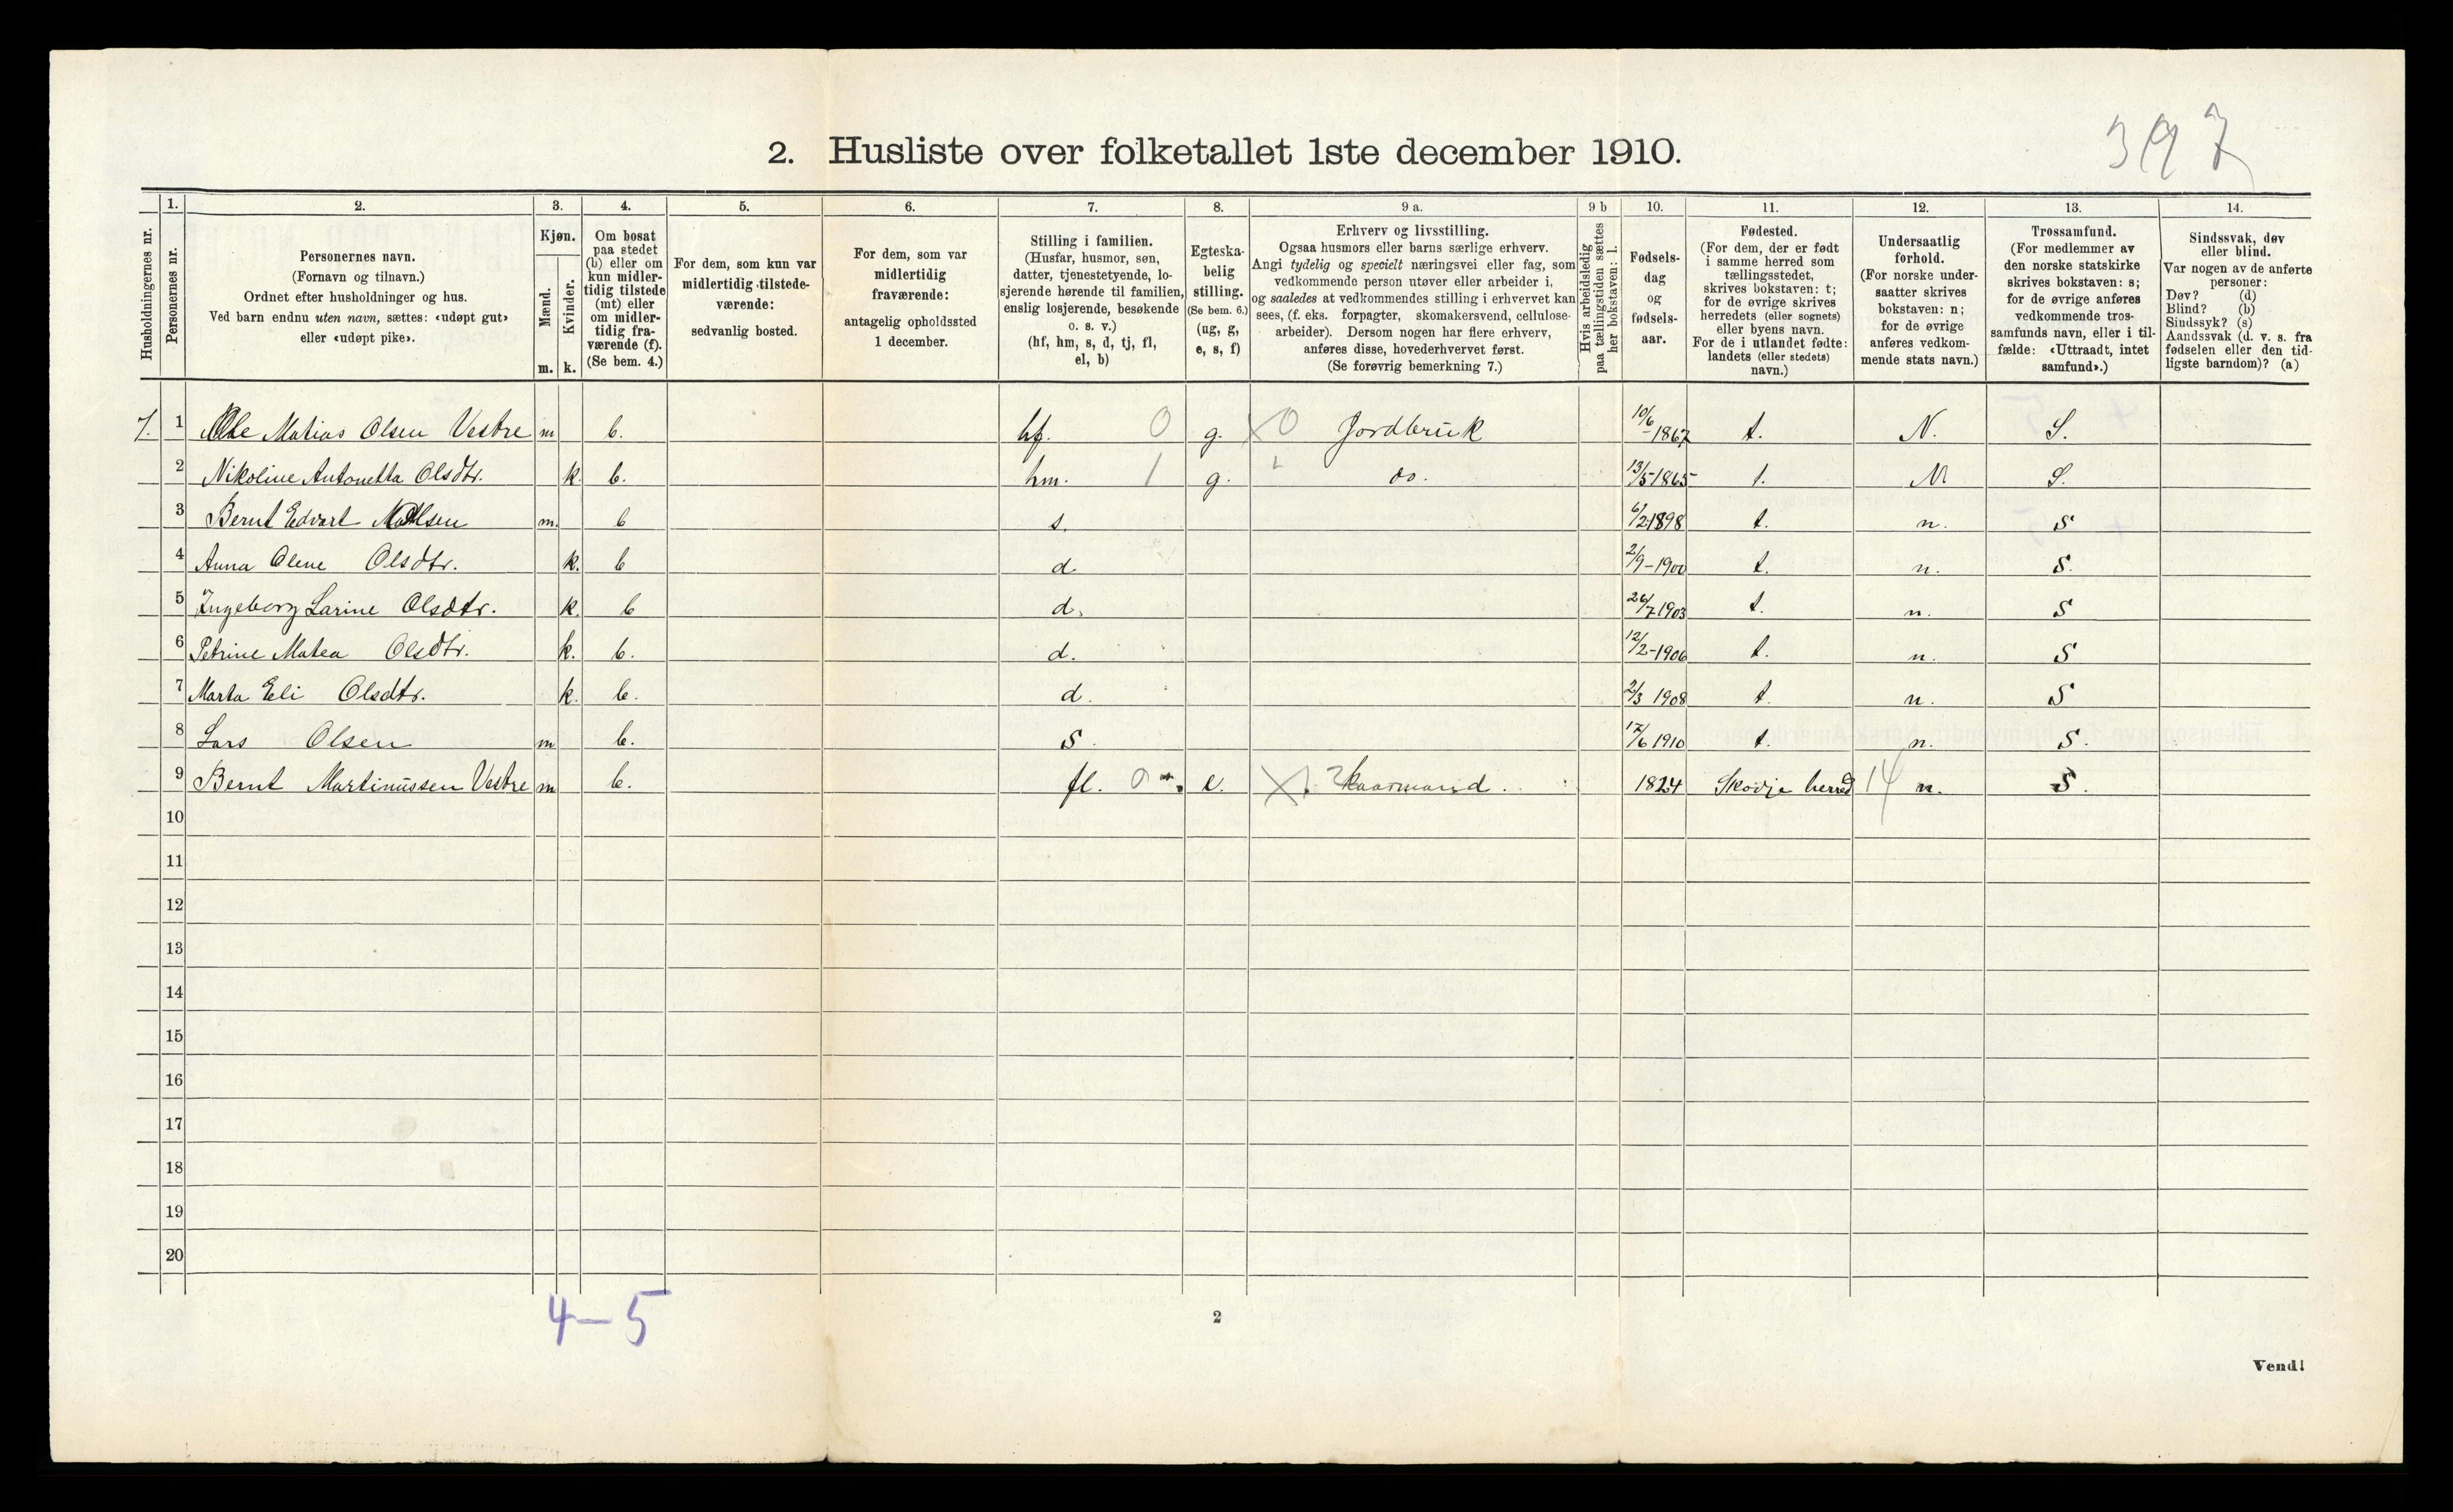 397
2. Husliste over folketallet 1ste december 1910.
Husholdningernes nr.
1. Personernes nr.
2. Personernes navn.
(Fornavn og tilnavn.)
Ordnet efter husholdninger og hus.
Ved barn endnu uten navn, sættes: «udøpt gut»
eller «udøpt pike».
3. Kjøn.
Mænd. m.
Kvinder. k.
4. Om bosat
paa stedet
(b) eller om
kun midler-
tidig tilstede
(mt) eller
om midler-
tidig fra-
værende (f).
(Se bem. 4.)
5. For dem, som kun var
midlertidig tilstede-
værende:
sedvanlig bosted.
6. For dem, som var
midlertidig
fraværende:
antagelig opholdssted
1 december.
7. Stilling i familien.
(Husfar, husmor, søn,
datter, tjenestetyende, lo-
sjerende hørende til familien,
enslig losjerende, besøkende
o. s. v.)
(hf, hm, s, d, tj, fl,
el, b)
8. Egteska-
belig
stilling.
(Se bem. 6.)
(ug, g,
e, s, f)
9 a. Erhverv og livsstilling.
Ogsaa husmors eller barns særlige erhverv.
Angi tydelig og specielt næringsvei eller fag, som
vedkommende person utøver eller arbeider i,
og saaledes at vedkommendes stilling i erhvervet kan
sees, (f. eks. forpagter, skomakersvend, cellulose-
arbeider). Dersom nogen har flere erhverv,
anføres disse, hovederhvervet først.
(Se forøvrig bemerkning 7.)
9 b Hvis arbeidsledig
paa tællingstiden sættes
her bokstaven: l.
10. Fødsels-
dag
og
fødsels-
aar.
11. Fødested.
(For dem, der er født
i samme herred som
tællingsstedet,
skrives bokstaven: t;
for de øvrige skrives
herredets (eller sognets)
eller byens navn.
For de i utlandet fødte:
landets (eller stedets)
navn.)
12. Undersaatlig
forhold.
(For norske under-
saatter skrives
bokstaven: n;
for de øvrige
anføres vedkom-
mende stats navn.)
13. Trossamfund.
(For medlemmer av
den norske statskirke
skrives bokstaven: s;
for de øvrige anføres
vedkommende tros-
samfunds navn, eller i til-
fælde: «Uttraadt, intet
samfund».)
14. Sindssvak, døv
eller blind.
Var nogen av de anførte
personer:
Døv? (d)
Blind? (b)
Sindssyk? (s)
Aandssvak (d. v. s. fra
fødselen eller den tid-
ligste barndom)? (a)
1. 1 Ole Matias Olsen Vestre m b. hf. 0 g. X 0 Jordbruk 10/6-1867 t. N. S.
2 Nikoline Antonetta Olsdtr. k. b. hm. 1 g. do. 13/5-1865 t. N S.
3 Bernt Edvart Olsen m. b s. 6/2-1898 t. n. S
4 Anna Olene Olsdtr. k. b d 2/9-1900 t. n. S.
5 Ingeborg Larine Olsdtr. k. b d. 26/7 1903 t. n. S
6 Petrine Matea Olsdtr. k. b. d. 12/2-1906 t. n. S
7 Marta Eli Olsdtr. k. b. d. 2/3 1908 t. n. S
8 Lars Olsen m b. S. 17/6 1910 t. n. S.
9 Bernt Martinussen Vestre m b. fl. 0 e. X Kaarmand. 1824 Skodje herred 14 n. S.
10
11
12
13
14
15
16
17
18
19
20
4–5
2
Vend!